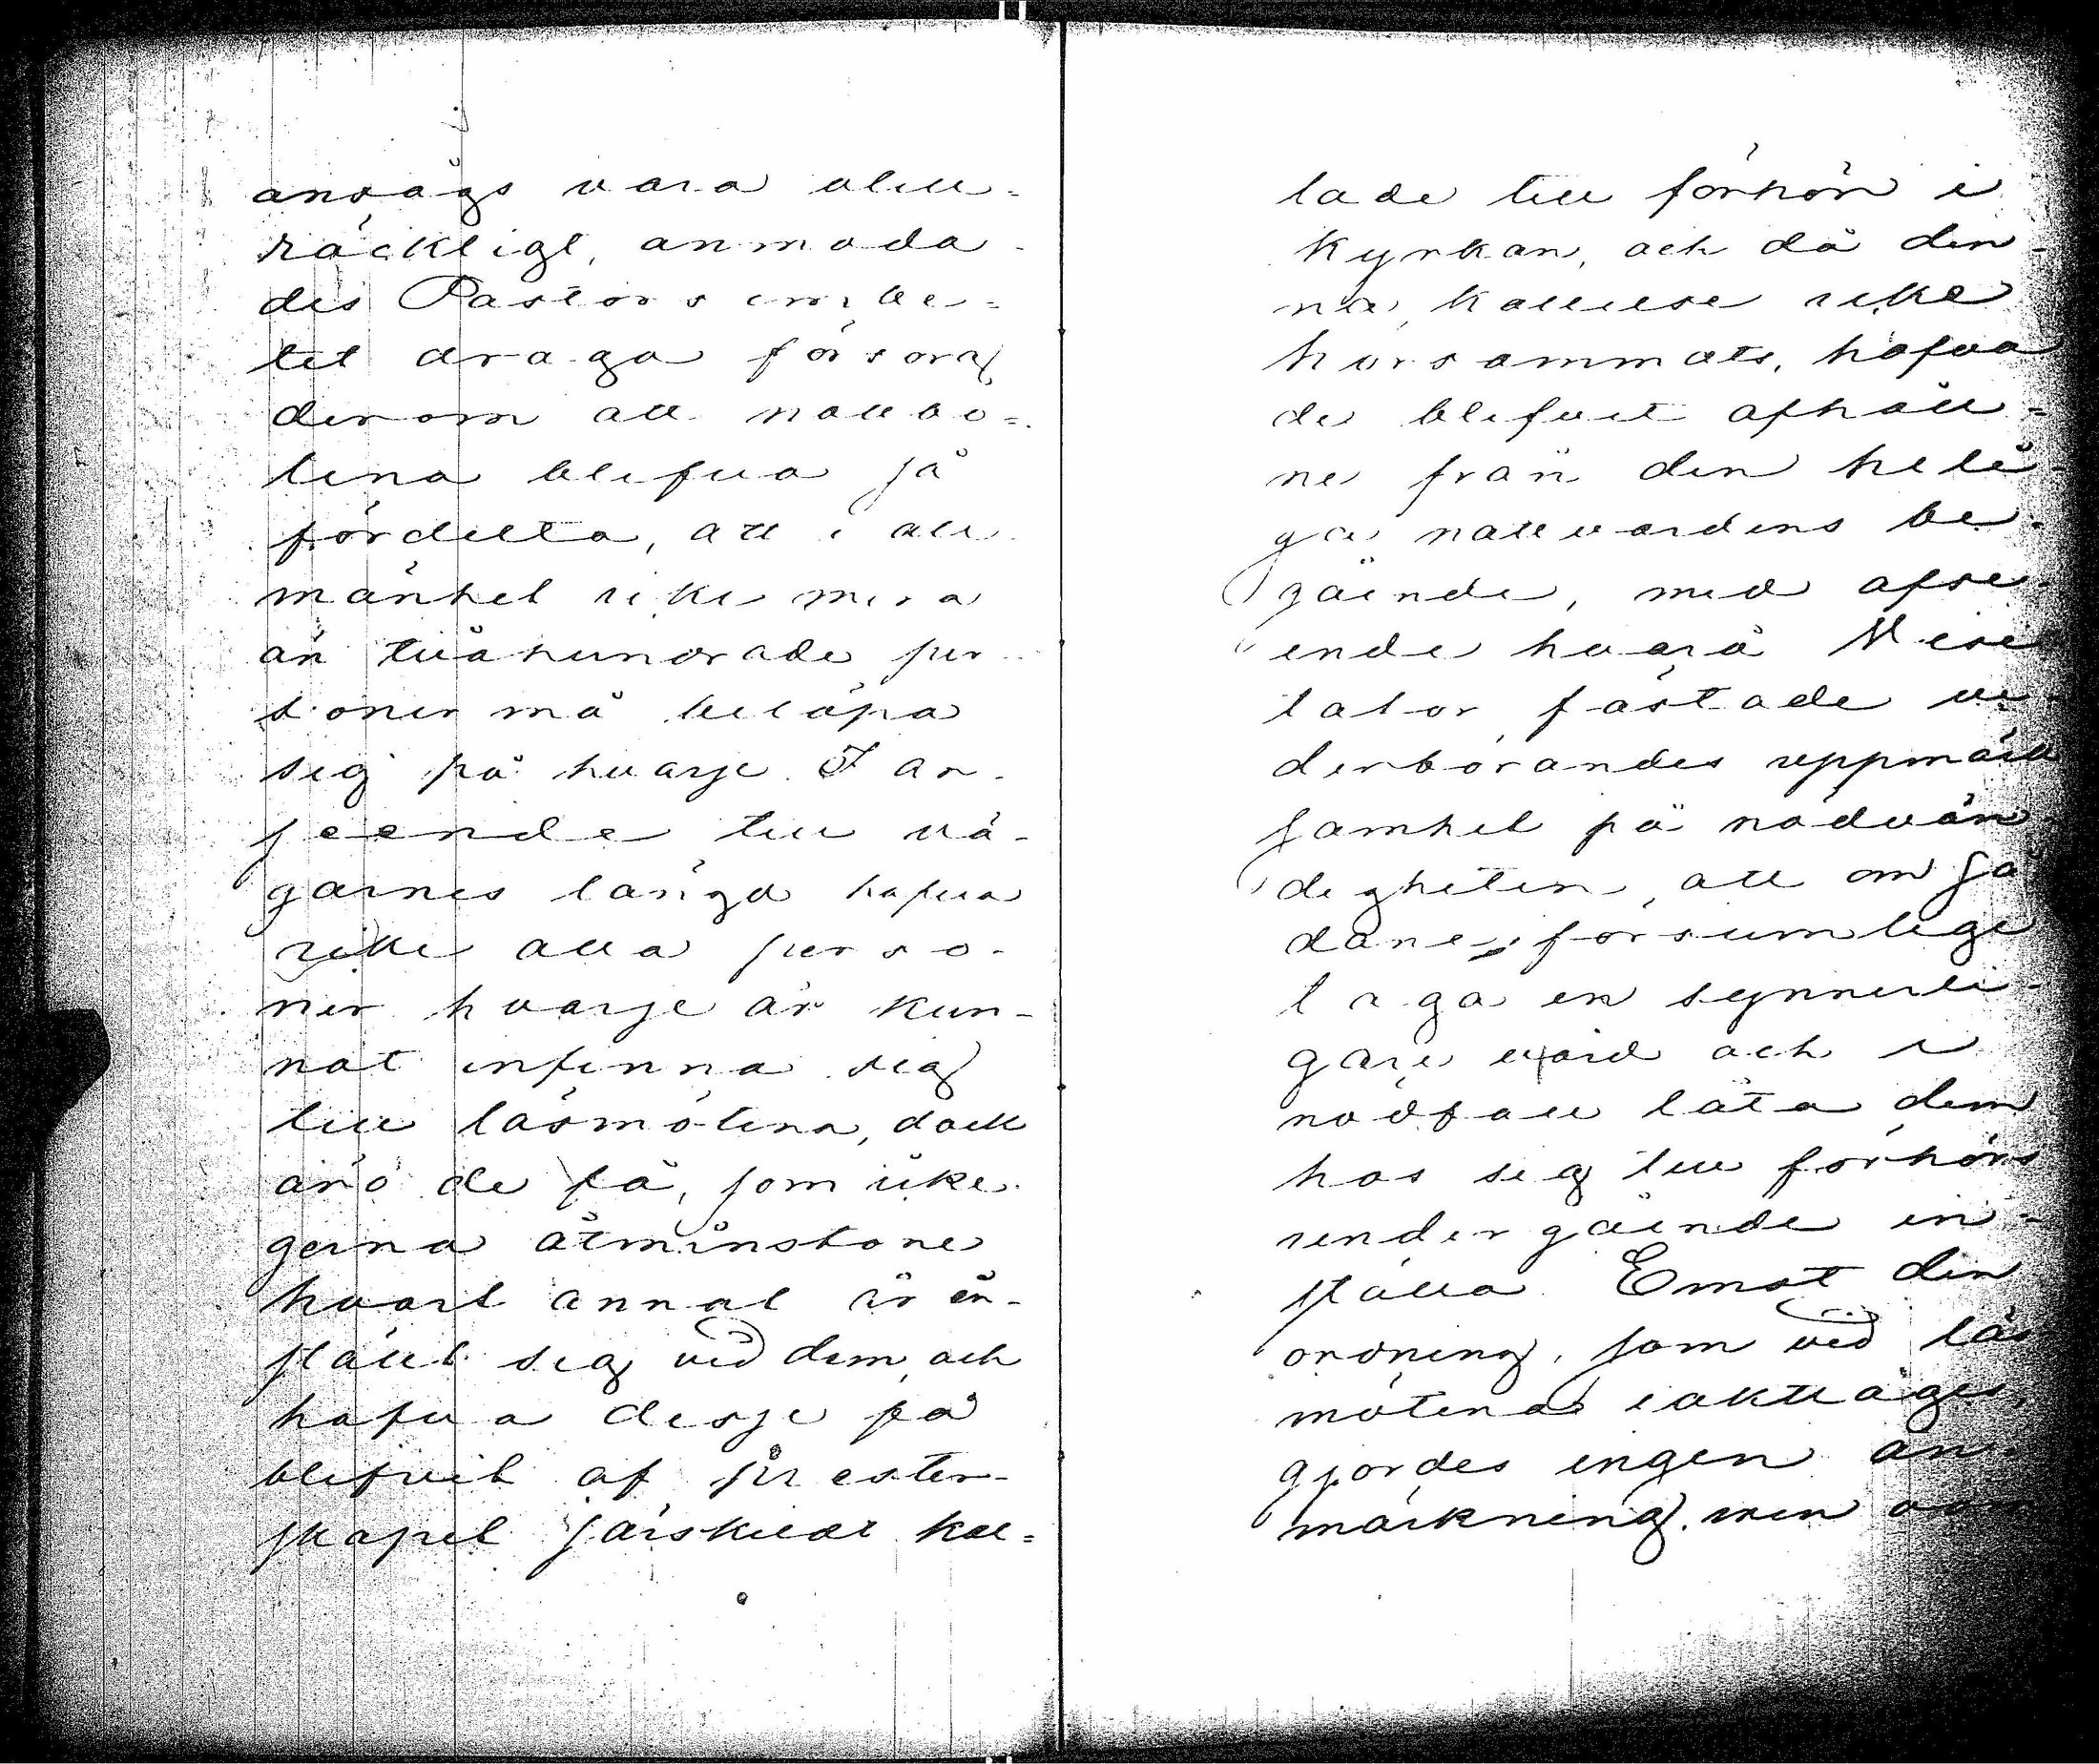 ansågs vara otill-
räckligt, anmoda-
des Pastorsembe-
tet draga försorg
derom att rotebo-
lena blefvo så
fördelta, att i all-
mänhet icke mera
än tvåhundrade per-
soner må belöpa
sig på hvarje. I an-
seende till vä-
garnes längd hafva
icke alla perso-
ner hvarje år kun-
nat infinna sig
till läsmötena, dock
äro de få, som icke
gerna åtminstone
hvart annat år in-
stält sig vid dem, och
hafva desse få
blifvit af prester-
skapet särskildt kal-
lade till förhör i
Kyrkan, och då den-
na kallelse icke
hörsammats, hafva
de blifvit afhåll-
ne från den heli-
ga nattvardens be-
gående, med afse-
ende hvarå Visi-
tator fästade ve-
derbörandes uppmärk
samhet på nödvän-
digheten, att om så
dane försumlige
taga en synnerli-
gare vård och i
nödfall låta dem
hos sig till förhörs
undergående in-
ställa. Emot den
ordning, som vid läs
mötena iakttages,
gjordes ingen an-
märkning, men